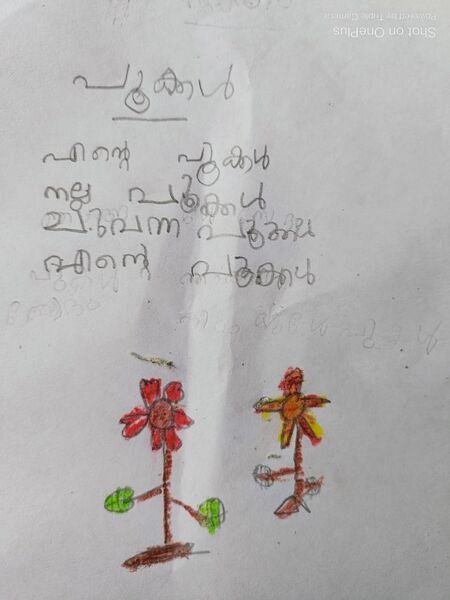 പൂക്കൾ
എന്റെ പൂക്കൾ
നല്ല പൂക്കൾ
ചുവന്ന പൂക്കൾ
എന്റെ പൂക്കൾ
Shot on OnePlus
Powered by Triple Camera